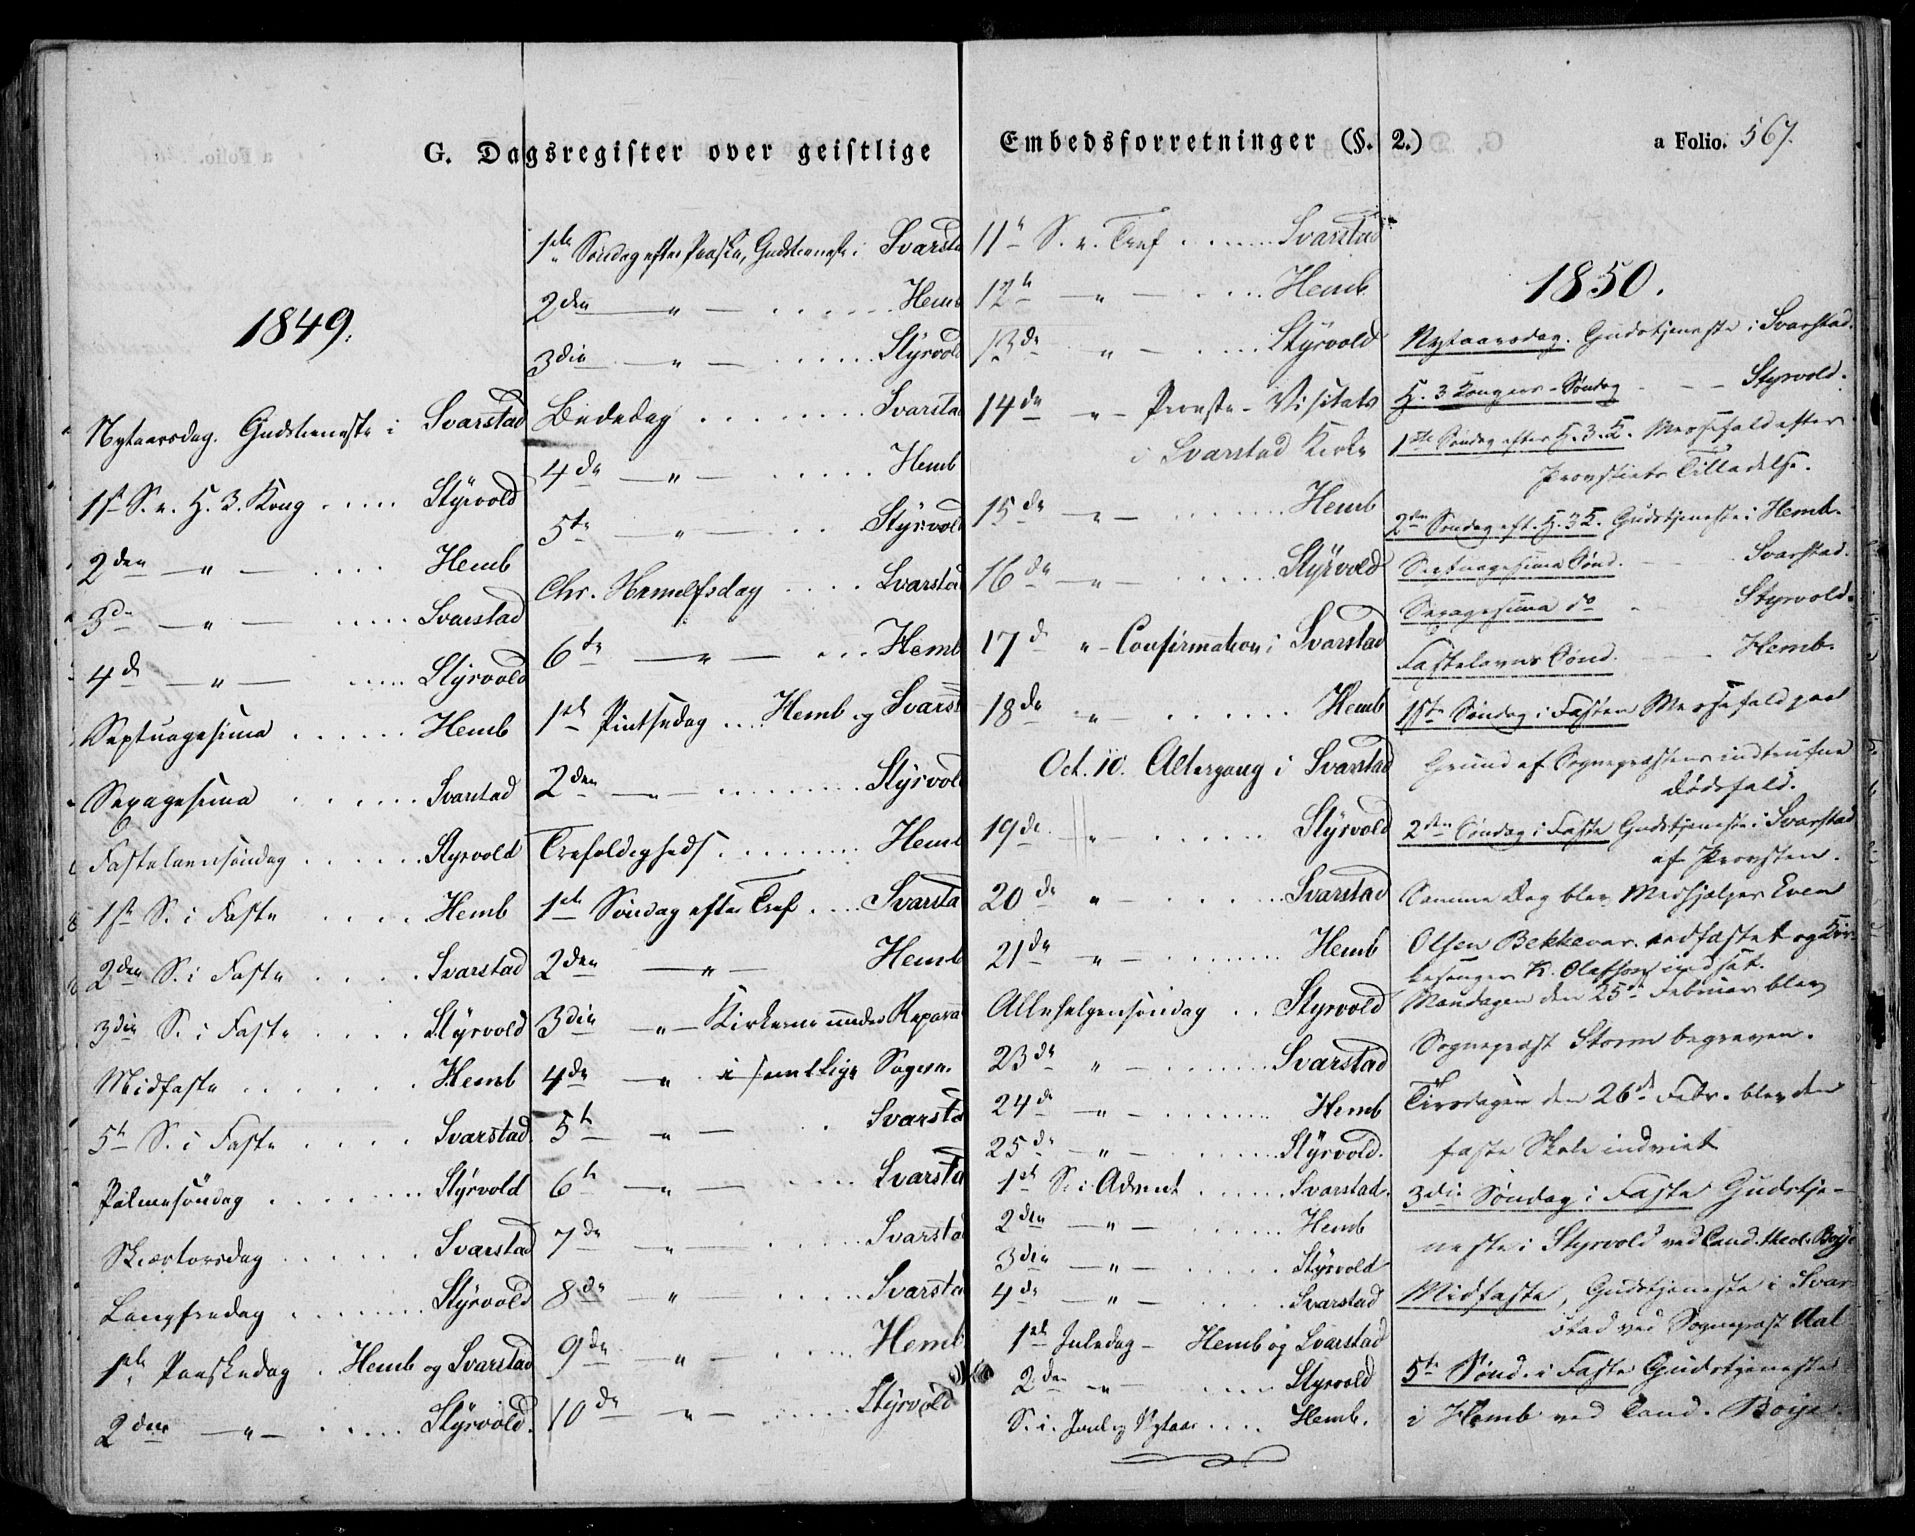 G. Dagsregister over geistlige Embedsforretninger (§. 2.) a Folio. 567.
1849.
Nytaarsdag. Gudstieneste i Svarstad
1ste S. e. H. 3. Kong ..... Styrvold
2den — " — .... Hemb
3die — " — ..... Svarstad
4de — " — ..... Styrvold
Septuagesima ...... Hemb
Sexagesima ...... Svarstad
Fastelavnsøndag ...... Styrvold
1ste S. i Faste .... Hemb
2den S. i Faste .... Svarstad
3die S. i Faste .... Styrvold
Midfaste ...... Hemb
5te S. i Faste .... Svarstad
Palmesøndag ...... Styrvold
Skiærtorsdag ..... Svarstad
Langfredag ...... Styrvold
1ste Paaskedag . Hemb og Svarstad
2den — " — ..... Styrvold.
1ste Søndag efter Paaske, Gudstieneste i Svarsta
2den — " — ...... Hemb
3die — " — ...... Styrvold
Bededag ....... Svarsta
4de — " — ..... Hemb
5te — " — .. Styrvold
Chr. Hemelfsdag .... Svarstad
6te — " — ... Hemb
1ste Pintsedag ... Hemb og Svarst
2den — " — ........ Styrvold
Trefoldigheds ........ Hemb
1ste Søndag efter Tref .... Svarsta
2den — " — Hemb
3die " — Kirkerne under Repara
4de — " i samtlige Sogne.
5te — " — . Svarstad
6te — " — ..... Svarstad
7de — " — ..... Svarstad
8de — " — ...... Svarstad
9de — " — ...... Hemb
10de — " — ..... Styrvold
11te S. e. Tref ....... Svarstad
12te — " — .... Hemb
13de " — .... Styrvold
14de " — Provste-Visitats
i Svarstad Kirke
15de — " — ....... Hemb
16de — " — ...... Styrvold
17de " — Confirmation i Svarstad
18de " ...... Hemb
Oct. 10. Altergang i Svarstad
19de " — ...... Styrvold
20de " — ..... Svarstad
21de " — ....... Hemb
Allehelgensøndag .. Styrvold
23de " — ....... Svarstad
24de — " — ....... Hemb
25de — " — ....... Styrvold.
1ste S. i Advent ...... Svarstad.
2den — " — ..... Hemb
3die — " — ..... Styrvold
4de — " — ..... Svarstad
1ste Juledag — Hemb og Svarstad
2den — " — ..... Styrvold
S. i. Jul og Nytaar .... Hemb.
1850.
Nytaarsdag. Gudstjeneste i Svarstad.
H. 3 Kongers-Søndag — — Styrvold.
1ste Søndag efter H. 3. K. Messefald efter
Provstiets Tilladelse.
2den Søndag eft. H. 3 K. Gudstjeneste i Hemb.
Septuagesima Sønd. — Svarstad.
Sexagesima do — Styrvold.
Fastelavns Sønd. — Hemb.
1ste Søndag i Fasten Messefald paa
Grund af Sognepræstens indtrufne
Dødsfald.
2den Søndag i Faste Gudstjeneste i Svarstad
af Provsten.
Samme Dag blev Medhjælper Even
Olsen Bekkevar. edfæstet og Kir-
kesanger K. Olafsen indsat.
Mandagen den 25de Februar blev
Sognepræst Storm begraven.
Tirsdagen den 26de Febr. blev den
faste Skole indviet
3die Søndag i Faste Gudstje-
neste i Styrvold ved Cand. theol. Boye
Midfaste, Gudstjeneste i Svar-
stad ved Sognepræst Aal
5te Sønd. i Faste Gudstjeneste
i Hemb ved Cand. Boye.